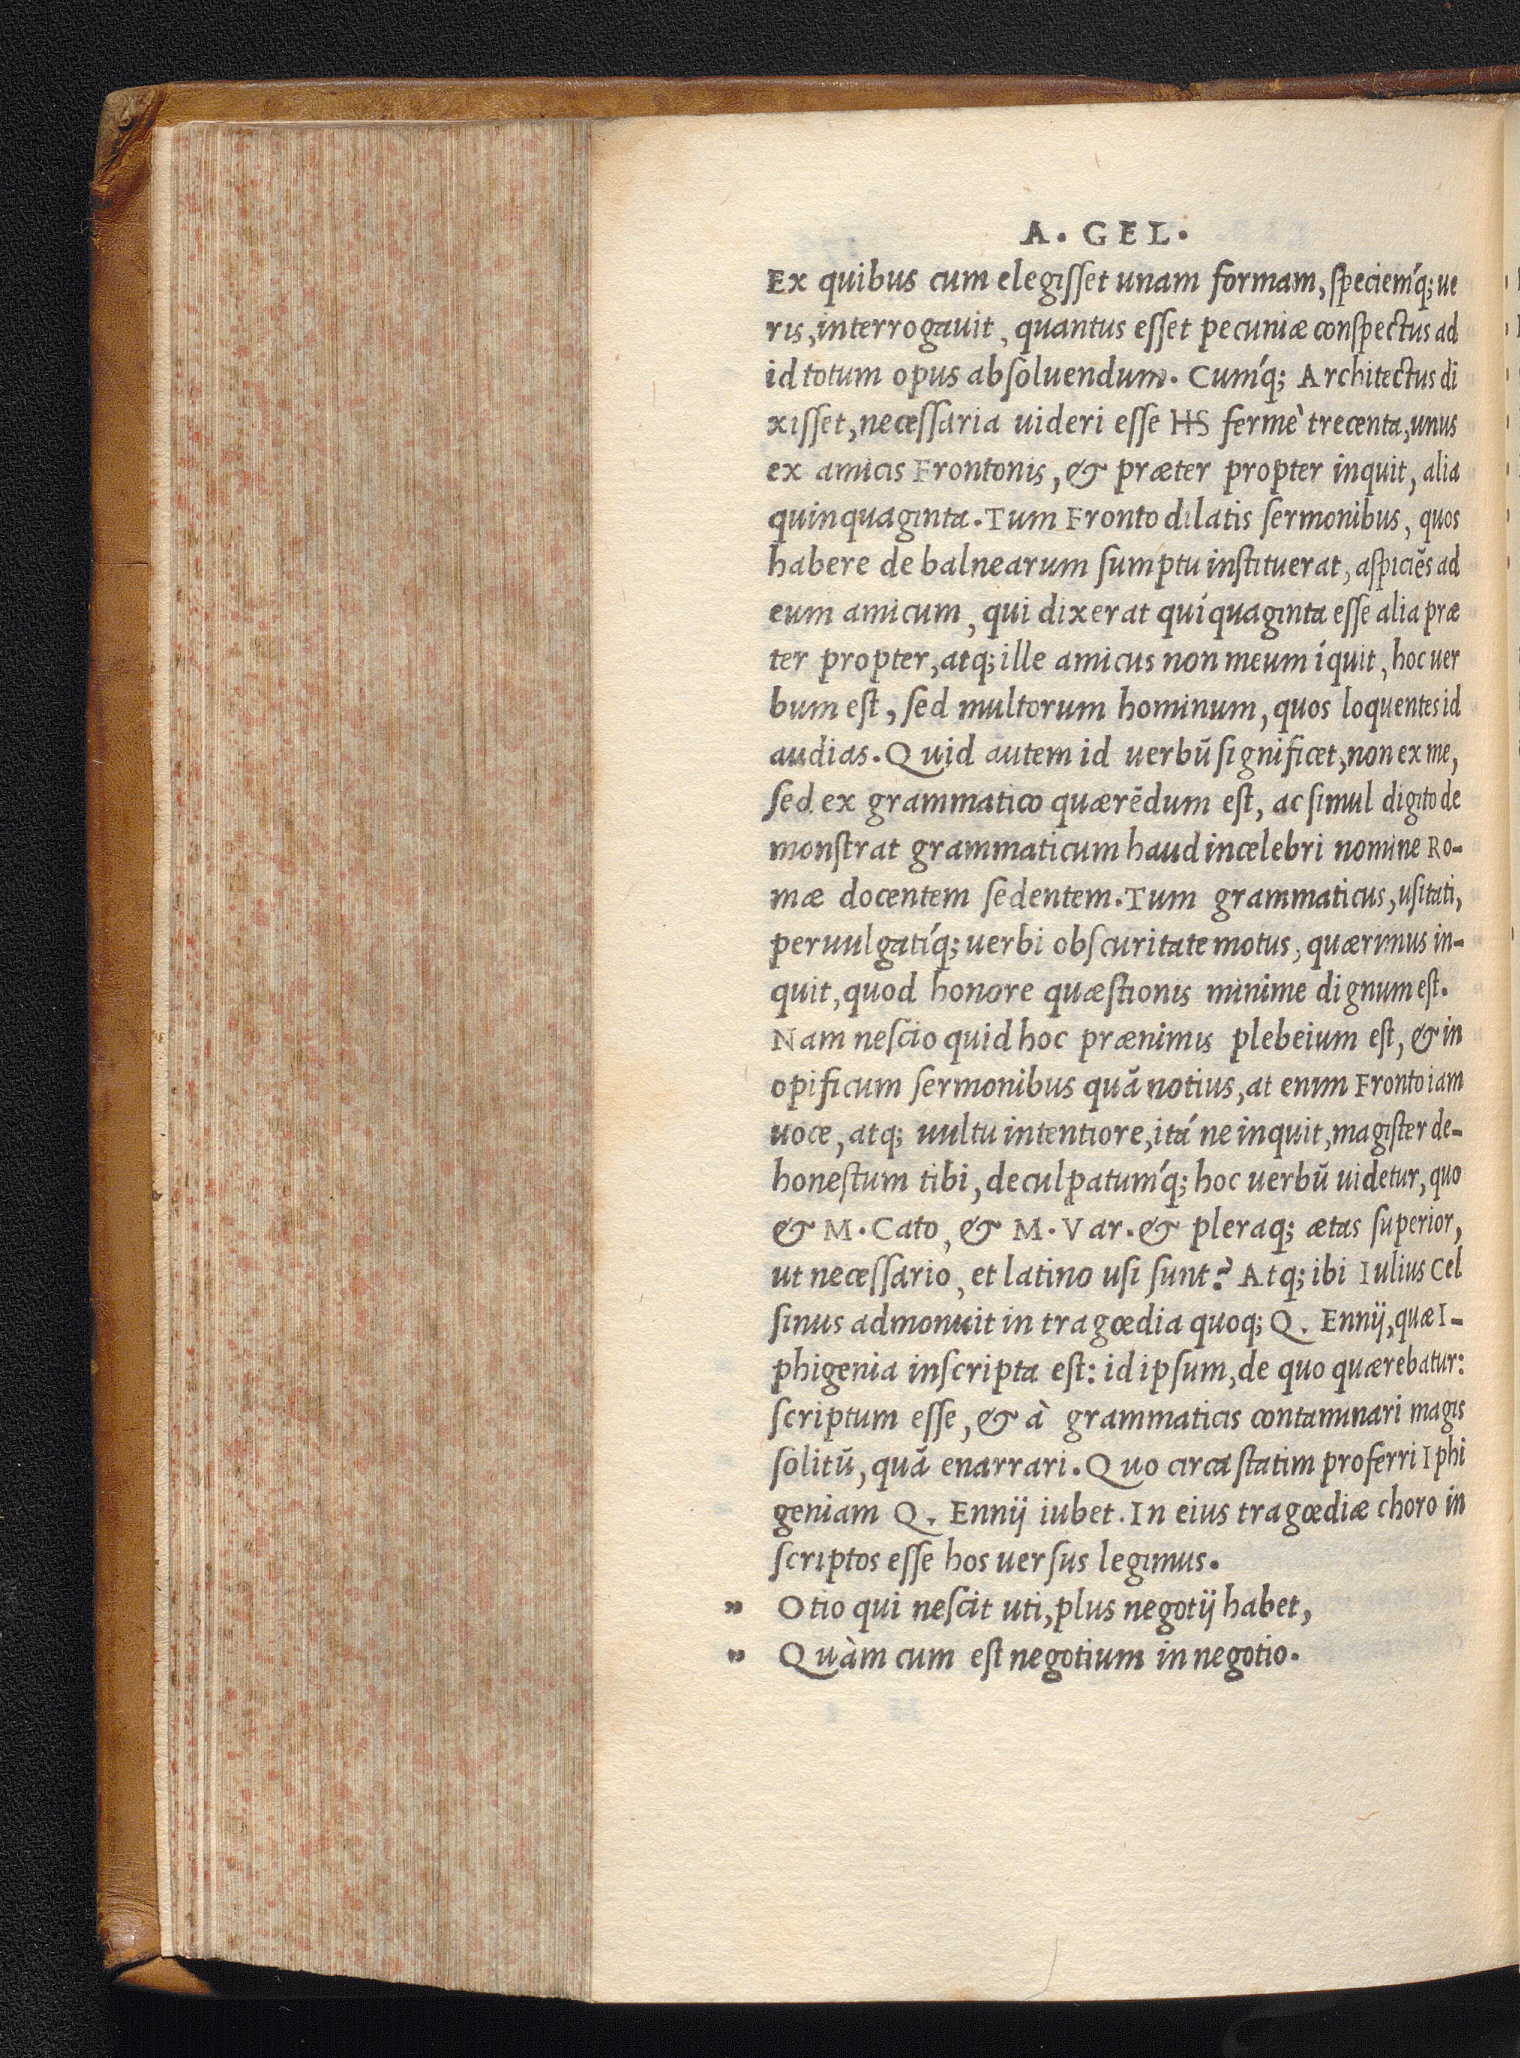 A. GEL.
Ex quibus cum elegisset unam formam, speciemq́; ue
ris, interrogauit, quantus esset pecuniæ conspectus ad
id totum opus absoluendum. Cumq́; Architectus di
xisset, necessaria uideri esse HS fermè trecenta, unus
ex amicis Frontonis, & præter propter inquit, alia
quinquaginta. Tum Fronto dilatis sermonibus, quos
habere de balnearum sumptu instituerat, aspiciẽs ad
eum amicum, qui dixerat quíquaginta esse alia præ
ter propter, atq; ille amicus non meum íquit, hoc uer
bum est, sed multorum hominum, quos loquentes id
audias. Quid autem id uerbũ significet, non ex me,
sed ex grammatico quærẽdum est, ac simul digito de
monstrat grammaticum haud incelebri nomine Ro-
mæ docentem sedentem. Tum grammaticus, usitati,
peruulgatiq́; uerbi obscuritate motus, quærimus in-
quit, quod honore quæstionis minime dignum est.
Nam nescio quid hoc prænimis plebeium est, & in
opificum sermonibus quã notius, at enim Fronto iam
uoce, atq; uultu intentiore, itá ne inquit, magister de-
honestum tibi, deculpatumq́; hoc uerbũ uidetur, quo
& M. Cato, & M. Var. & pleraq; ætas superior,
ut necessario, et latino usi sunt? Atq; ibi Iulius Cel
sinus admonuit in tragœdia quoq; Q. Ennij, quæ I-
phigenia inscripta est: id ipsum, de quo quærebatur:
scriptum esse, & à grammaticis contaminari magis
solitũ, quã enarrari. Quo circa statim proferri Iphi
geniam Q. Ennij iubet. In eius tragœdiæ choro in
scriptos esse hos uersus legimus.
" Otio qui nescit uti, plus negotij habet,
" Quàm cum est negotium in negotio.